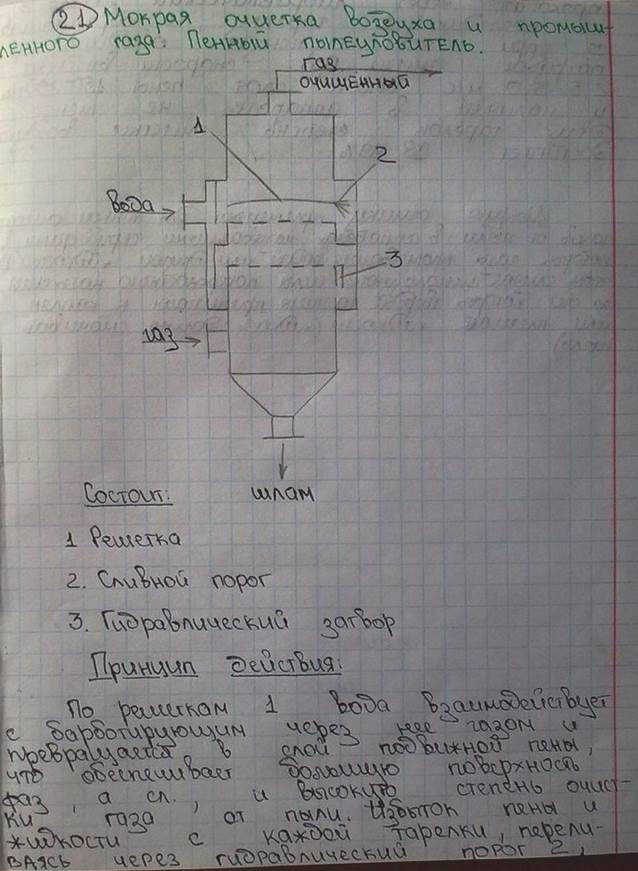 21 Мокрая очистка воздуха и промыш-
ленного газа. Пенный пылеуловитель.
газ
очищенный
1
2
вода
3
газ
шлам
Состоит:
1 Решетка
2. Сливной порог
3. Гидравлический затвор
Принцип действия:
По решеткам 1 вода взаимодействует
с барботирующим через нее газом и
превращается в слой подвижной пены,
что обеспечивает большую поверхность
фаз, а сл., и высокую степень очист-
ки газа от пыли. Избыток пены и
жидкости с каждой тарелки, перели-
ваясь через гидравлический порог 2,